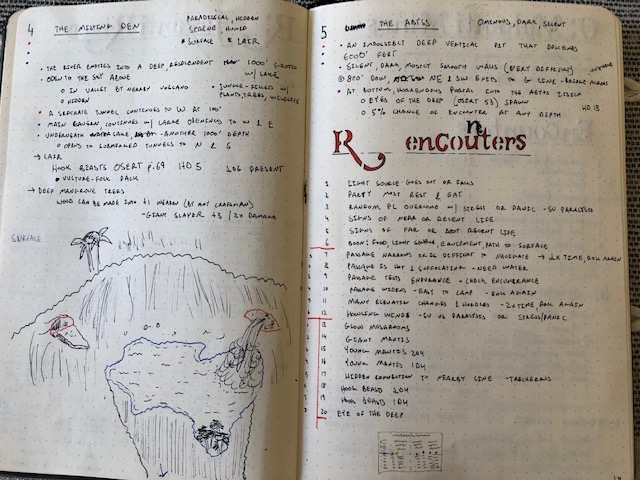 4 THE MISTING DEN
PARADISICAL, HIDDEN
SERENE, HUMID
* SURFACE * LAIR
• THE RIVER EMPTIES INTO A DEEP, RESPLENDENT 1000' GROTTO W/ LAKE
• OPEN TO THE SKY ABOVE
○ IN VALLEY BY NEARBY VOLCANO
○ HIDDEN
• JUNGLE-FILLED W/ PLANTS, TREES, WILDLIFE
• A SEPARATE TUNNEL CONTINUES TO W AT 100'
• MAIN CAVERN CONTINUES W/ LARGE OPENINGS TO W & E
• UNDERNEATH LAKE, - ANOTHER 1000' DEPTH
○ OPENS TO SUBMERGED TUNNELS TO N & S
→ LAIR
HOOK BEASTS OSERT p.69 HD 5 2d6 PRESENT
• VULTURE-FOLK PACK
→ DEEP MANGROVE TREES
WOOD CAN BE MADE INTO +1 WEAPON (BY ANY CRAFTSMAN)
- GIANT SLAYER +3 / 2x DAMAGE
SURFACE
5 THE ABYSS
OMINOUS, DARK, SILENT
• AN IMPOSSIBLY DEEP VERTICAL PIT THAT DESCENDS
6000' FEET
• SILENT, DARK, MOSTLY SMOOTH WALLS (VERY DIFFICULT)
@ 980' DOWN, NE & SW EXITS TO G LINE -
• AT BOTTOM, HORRENDOUS PORTAL INTO THE ABYSS ITSELF
○ EYES OF THE DEEP (OSERT 53) SPAWN HD 13
○ 5% CHANCE OF ENCOUNTER AT ANY DEPTH
R encounters
1 LIGHT SOURCE GOES OUT OR FAILS
2 PARTY MUST REST & EAT
3 RANDOM PC OVERCOME W/ STRESS OR PANIC - SV PARALYSIS
4 SIGNS OF NEAR OR RECENT LIFE
5 SIGNS OF FAR OR NOT RECENT LIFE
6 BOON: FOOD, LIGHT SOURCE, EQUIPMENT, PATH TO SURFACE
7 PASSAGE NARROWS OR IS DIFFICULT TO NAVIGATE → 2x TIME, ROLL AGAIN
8 PASSAGE IS HOT & SUFFOCATING - NEED WATER
9 PASSAGE TESTS ENDURANCE - CHECK ENCUMBRANCE
10 PASSAGE WIDENS - EASY TO CAMP - ROLL AGAIN
11 MANY ELEVATION CHANGES & HURDLES - 2x TIME, ROLL AGAIN
12 HOWLING WINDS - SV VS PARALYSIS OR STRESS/PANIC
13 GLOW MUSHROOMS
14 GIANT MANTIS
15 YOUNG MANTIS 2D4
16 YOUNG MANTIS 1D4
17 HIDDEN CONNECTION TO NEARBY LINE - TREACHEROUS
18 HOOK BEASTS 2D4
19 HOOK BEASTS 1D4
20 EYE OF THE DEEP